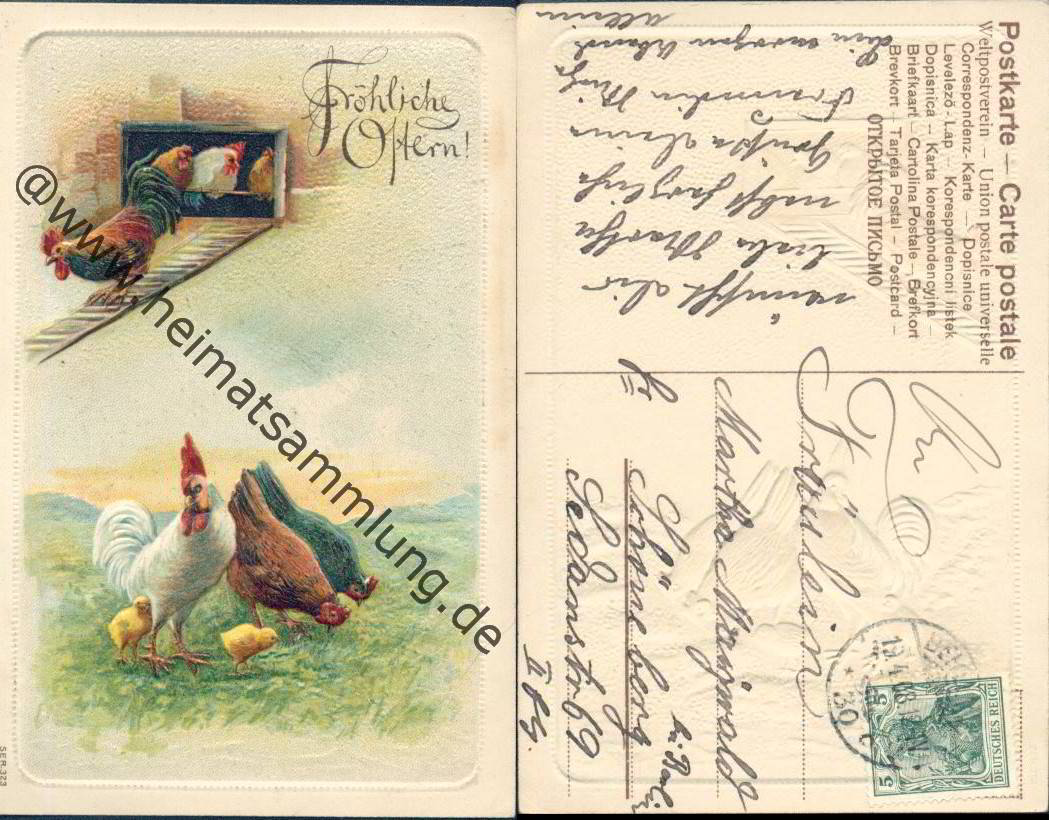 Fröhliche
Ostern!
@www.heimatsammlung.de
SER. 323
Postkarte — Carte postale
Weltpostverein — Union postale universelle
Correspondenz-Karte — Dopisnice
Levelező-Lap — Korespondencni listek
Dopisnica — Karta korespondencyjna —
Briefkaart — Cartolina Postale — Brefkort
Brevkort — Tarjeta Postal — Postcard —
ОТКРЫТОЕ ПИСЬМО
wünscht dir
liebe Martha
nebst herzliche
Grüße deine
Freundin
An
Fräulein
Martha
Schöneberg
bei Berlin
Sedanstr. 69
II
5 5
DEUTSCHES REICH